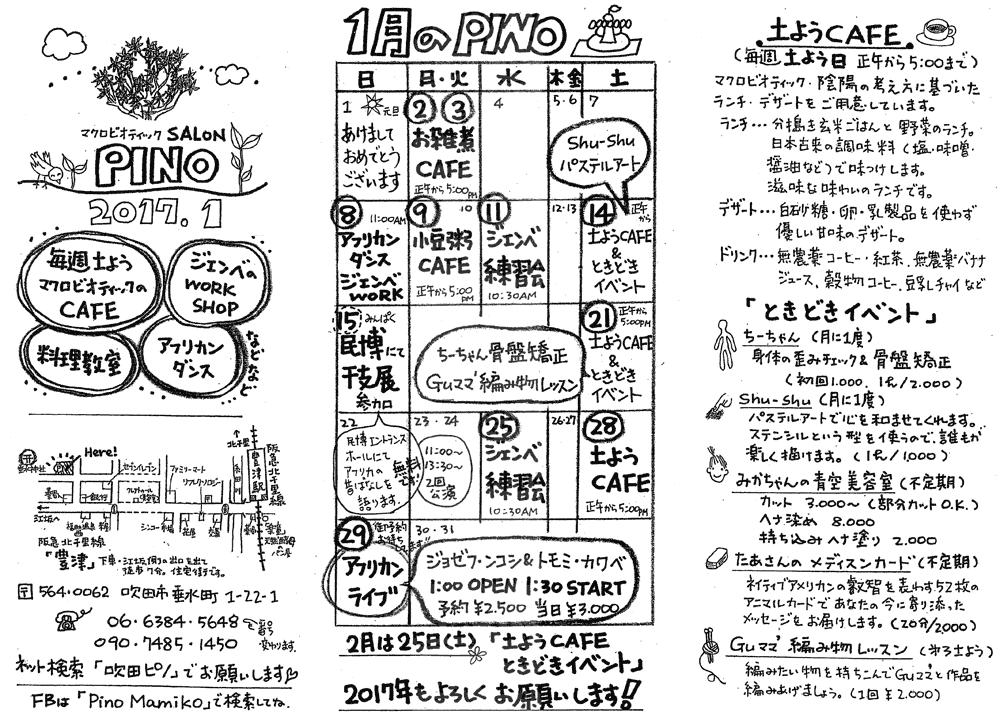 マクロビオティック SALON
PINO
2017.1
毎週土よう
マクロビオティックの
CAFE
ジェンベの
WORK
SHOP
料理教室
アフリカン
ダンス
などなど
Here!
セブンイレブン
ファミリーマート
リフレクソロジー
北千里
阪急北千里線
豊津駅
江坂
阪急北千里線
「豊津」下車・江坂側の出口を出て
徒歩7分。住宅街です。
〒564-0062 吹田市垂水町 1-22-1
06-6384-5648
090-7485-1450
ネット検索 「吹田ピノ」でお願いします
FBは「Pino Mamiko」で検索してね。
1月の PINO
日 月・火 水 木 金 土
1 元旦
あけまして
おめでとう
ございます
2 3
お雑煮
CAFE
正午から5:00PM
4
5・6
7
Shu-Shu
パステルアート
8 11:00AM
アフリカン
ダンス
ジェンベ
WORK
9 10
小豆粥
CAFE
正午から5:00PM
11
ジェンベ
練習会
10:30AM
12・13
14 正午から
土ようCAFE
&
ときどき
イベント
15 みんぱく
民博にて
干支展
参加
ちーちゃん骨盤矯正
Guママ編み物レッスン
21 正午から5:00PM
土ようCAFE
&
ときどき
イベント
22
民博エントランス
ホールにて
アフリカの
昔ばなしを
語ります。
無料です
23・24
11:00〜
13:30〜
2回
公演
25
ジェンベ
練習会
10:30AM
26・27
28
土よう
CAFE
正午から5:00PM
29 御予約お待ちしてます!!
アフリカン
ライブ
30・31
ジョゼフ・ンコシ&トモミ・カワベ
1:00 OPEN 1:30 START
予約¥2.500 当日¥3.000
2月は25日(土)「土ようCAFE
ときどきイベント」
2017年もよろしくお願いします!!
土ようCAFE
(毎週土よう日 正午から5:00まで)
マクロビオティック・陰陽の考え方に基づいた
ランチ・デザートをご用意しています。
ランチ・・・分搗き玄米ごはんと野菜のランチ。
日本古来の調味料(塩・味噌・
醤油など)で味つけします。
滋味な味わいのランチです。
デザート・・・白砂糖・卵・乳製品を使わず
優しい甘味のデザート。
ドリンク・・・無農薬コーヒー・紅茶、無農薬バナナ
ジュース、穀物コーヒー、豆乳チャイなど
「ときどきイベント」
ちーちゃん (月に1度)
身体の歪みチェック&骨盤矯正
(初回1.000、1R/2.000)
Shu-shu (月に1度)
パステルアートで心を和ませてくれます。
ステンシルという型を使うので、誰もが
楽しく描けます。(1R/1,000)
みかちゃんの青空美容室(不定期)
カット 3.000〜(部分カットO.K.)
ヘナ染め 8.000
持ち込みヘナ塗り 2.000
たあさんのメディスンカード(不定期)
ネイティブアメリカンの叡智を表わす52枚の
アニマルカードであなたの今に寄り添った
メッセージをお届けします。(20分/2000)
Guママ編み物レッスン (第3土よう)
編みたい物を持ちこんでGuママと作品を
編みあげましょう。(1回¥2.000)